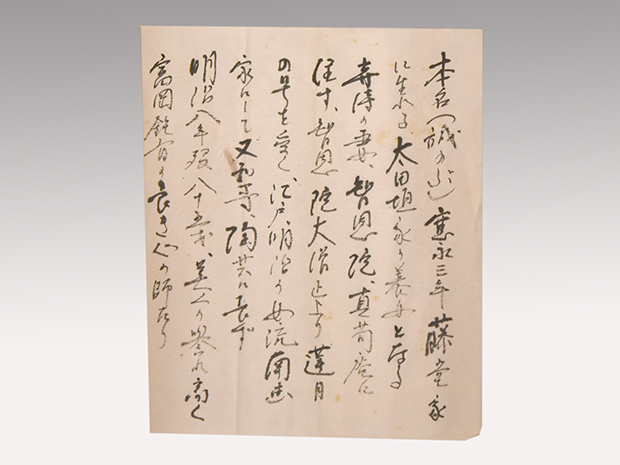 本名(誠のぶ) 永三年藤堂家
に生れる、太田垣家の養女となる
の妻、智恩院、真庵に
住す、智恩院大僧正より蓮月
の号を受く、江戸明治の女流南画
家にして又和歌、陶芸に長ず
明治八年歿八十五才、美人の誉れ高く
富岡鉄斎の良き心の師たり